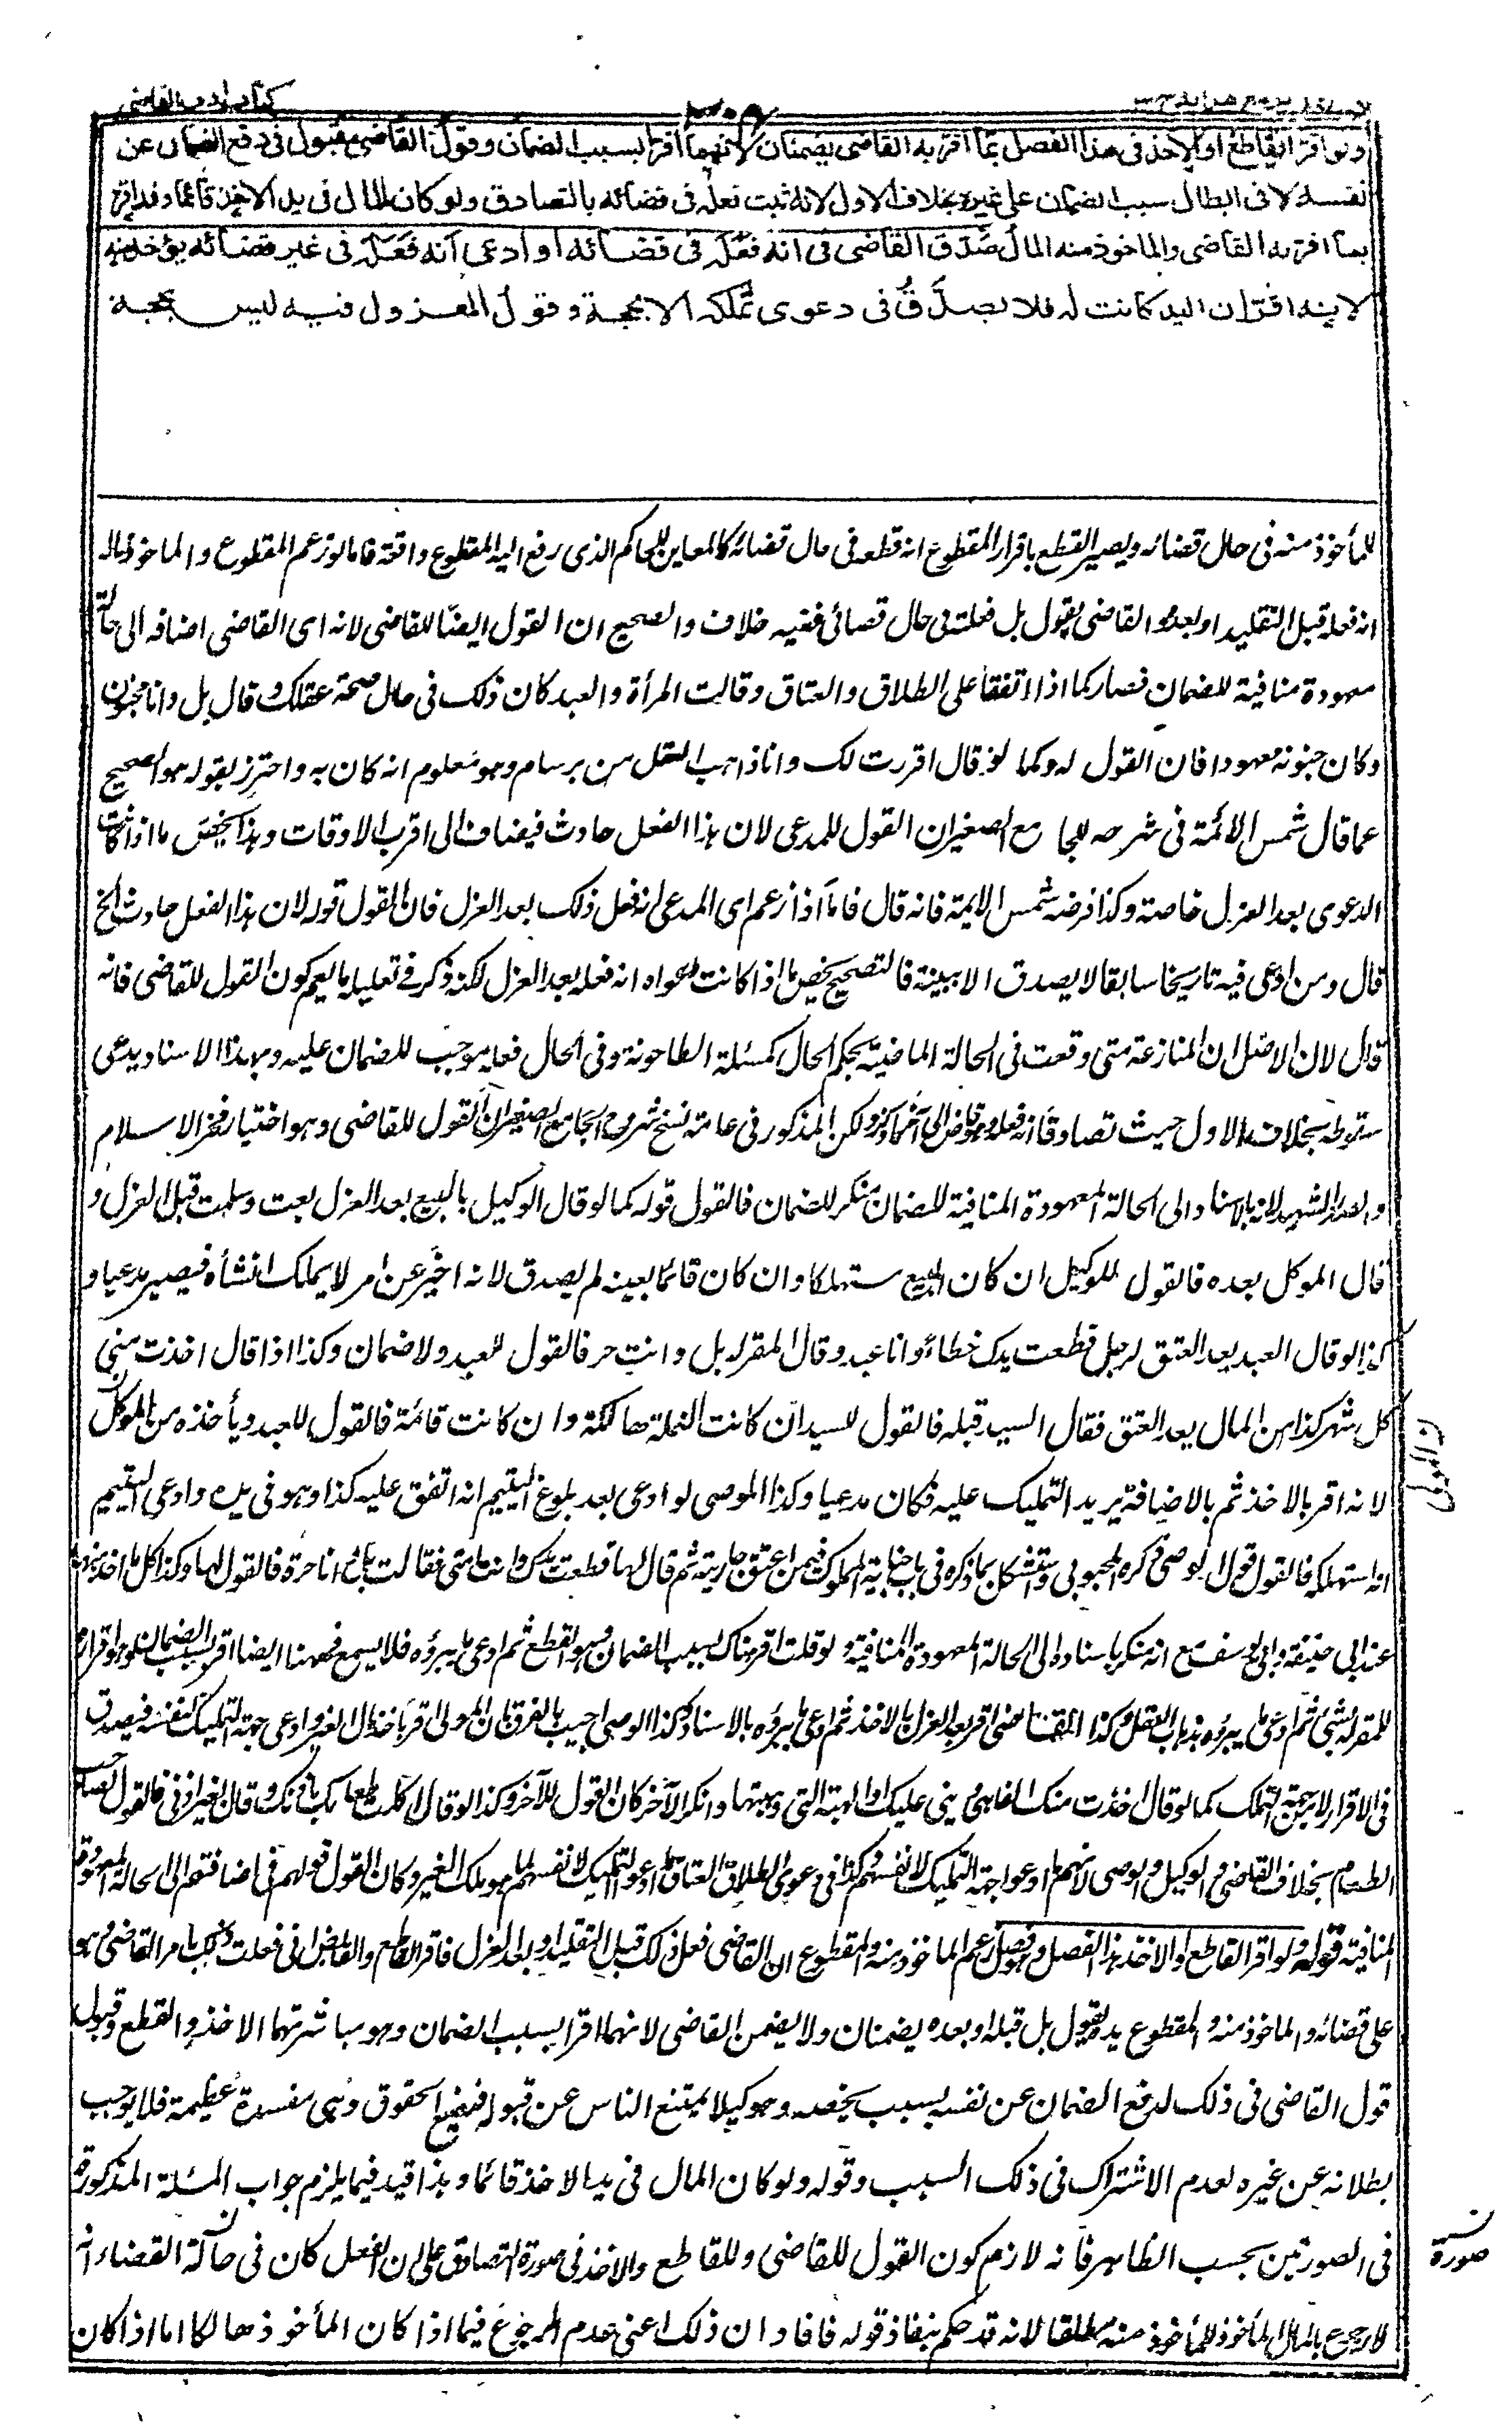 كتاب ادب القاضي
ولو اقر القاطع او الاخذ في هذا الفصل بما اقر به القاضي يضمنان لانهما اقرا بسبب الضمان وقول القاضي مقبول في دفع الضمان عن
نفسه لا في ابطال سبب الضمان على غيره بخلاف الاول لانه ثبت فعله في قضائه بالتصادق ولو كان المال في يد الاخذ قائما وقد اقر
بما اقر به القاضي والماخوذ منه المال صدق القاضي في انه فعله في قضائه او ادعى انه فعله في غير قضائه يؤخذ منه
لانه اقر ان اليد كانت له فلا يصدق في دعوى تملكه الا بحجة وقول المعزول فيه ليس بحجة
للمأخوذ منه في حال قضائه ويصير القطع باقرار المقطوع انه قطعه في حال قضائه كالمعاين للحاكم الذي رفع اليه المقطوع واقعته فاما لو زعم المقطوع والماخوذ ماله
انه فعله قبل التقليد او بعده والقاضي يقول بل فعلته في حال قضائي ففيه خلاف والصحيح ان القول ايضا للقاضي لانه اى القاضي اضافه الى حالة
معهودة منافية للضمان فصار كما اذا اتفقا على الطلاق والعتاق وقالت المرأة والعبد كان ذلك في حال صحة عقلك وقال بل وانا مجنون
وكان جنونه معهودا فان القول له وكما لو قال اقررت لك وانا ذاهب العقل من برسام وهو معلوم انه كان به واحترز بقوله هو الصحيح
عما قال شمس الائمة في شرحه للجامع الصغير ان القول للمدعى لان هذا الفعل حادث فيضاف الى اقرب الاوقات وهذا يخص ما اذا كانت
الدعوى بعد العزل خاصة وكذا فرضه شمس الايمة فانه قال فاما اذا زعم اى المدعى انه فعل ذلك بعد العزل فان القول قوله لان هذا الفعل حادث الخ
قال ومن ادعى فيه تاريخا سابقا لا يصدق الا ببينة فالتصحيح يخص ما اذا كانت دعواه انه فعله بعد العزل لكنه ذكر في تعليله ما يعم كون القول للقاضي فانه
قال لان الاصل ان المنازعة متى وقعت في الحالة الماضية بحكم الحال كمسئلة الطاحونة وفي الحال فعله موجب للضمان عليه وبهذا الاسناد يدعى
سقوطه بخلاف الاول حيث تصادقا انه فعله وهو قاض الى آخر ما ذكر ولكن المذكور في عامة نسخ شروح الجامع الصغير ان القول للقاضي وهو اختيار فخر الاسلام
والصدر الشهيد لانه بالاسناد الى الحالة المعهودة المنافية للضمان منكر للضمان فالقول قوله كما لو قال الوكيل بالبيع بعد العزل بعت وسلمت قبل العزل و
قال الموكل بعده فالقول للوكيل ان كان المبيع مستهلكا وان كان قائما بعينه لم يصدق لانه اخبر عن امر لا يملك انشأه فيصير مدعيا و
كذا لو قال العبد بعد العتق لرجل قطعت يدك خطاء وانا عبد وقال المقر له بل وانت حر فالقول للعبد ولا ضمان وكذا اذا قال اخذت منى
كل شهر كذا من المال بعد العتق فقال السيد قبله فالقول للسيد ان كانت الغلة هالكة وان كانت قائمة فالقول للعبد ويأخذه من الموكل
لانه اقر بالاخذ ثم بالاضافة يريد التمليك عليه فكان مدعيا وكذا الموصى لو ادعى بعد بلوغ اليتيم انه انفق عليه كذا وهو في يده وادعى اليتيم
انه استهلكه فالقول قول الوصى ذكره المحبوبى واستشكل بما ذكره في باب جناية المملوك فيمن اعتق جاريته ثم قال لها قطعت يدك وانت امتى فقالت بل انا حرة فالقول لها وكذا كل ما اخذ منها
عند ابى حنيفة وابى يوسف مع انه منكر باسناده الى الحالة المعهودة المنافية ولو قلت اقر هناك بسبب الضمان وهو القطع ثم ادعى ما يبرؤه فلا يسمع فههنا ايضا اقر بسبب الضمان
للمقر له بشئ ثم ادعى ما يبرؤه بذهاب العقل وكذا القاضي اقر بعد العزل بالاخذ ثم ادعى ما يبرؤه بالاسناد وكذا الوصى اجيب بالفرق بان المولى اقر باخذ مال الغير وادعى جهة التمليك لنفسه فيصدق
في الاقرار لا في جهة التملك كما لو قال اخذت منك الفا هي ديني عليك او الهبة التى وهبتها وانكر الآخر كان القول للآخر وكذا لو قال اكلت طعامك باذنك وقال الغير اذنى فالقول لصاحب
الطعام بخلاف القاضي والوكيل والوصى لانهم ما ادعوا جهة التمليك لانفسهم وكذا في دعوى الطلاق والعتاق ما ادعوا التمليك لانفسهم لما هو ملك الغير وكان القول قولهم في اضافتهم الى الحالة المعهودة
المنافية قوله ولو اقر القاطع او الاخذ في هذا الفصل وهو فصل زعم الماخوذ منه والمقطوع ان القاضي فعل ذلك قبل التقليد او بعد العزل فاقر القاطع والقابض انى فعلت ذلك بامر القاضي وهو
على قضائه والماخوذ منه والمقطوع يده يقول بل قبله او بعده يضمنان ولا يضمن القاضي لانهما اقرا بسبب الضمان وهو مباشرتهما الاخذ والقطع وقبول
قول القاضي في ذلك لدفع الضمان عن نفسه بسبب يخصه وهو كيلا يمتنع الناس عن قبوله فيضيع الحقوق وهي مفسدة عظيمة فلا يوجب
بطلانه عن غيره لعدم الاشتراك في ذلك السبب وقوله ولو كان المال في يد الاخذ قائما وهذا قيد فيما يلزم جواب المسئلة المذكورة
في الصورتين بحسب الظاهر فانه لازم كون القول للقاضي وللقاطع والاخذ في صورة التصادق على ان الفعل كان في حالة القضاء انه
صورة
لا رجوع بالمال المأخوذ للمأخوذ منه مطلقا لانه قد حكم بنفاذ قوله فافاد ان ذلك اعنى عدم الرجوع فيما اذا كان المأخوذ هالكا اما اذا كان